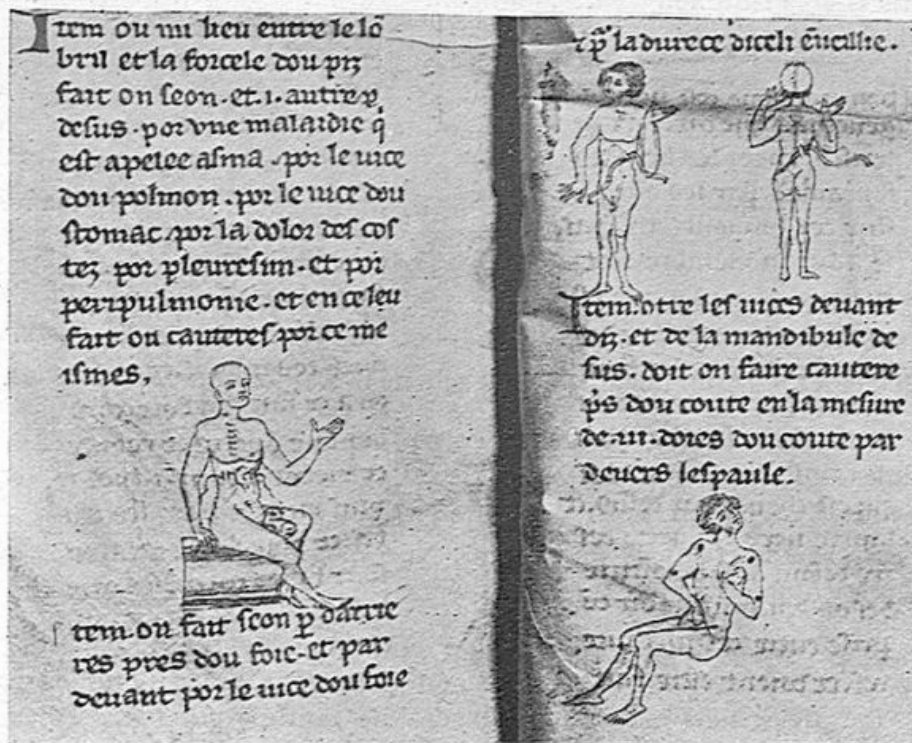 Item ou mi lieu entre le lō
bril et la forcele dou piz
fait on seon. et .i. autre p̱
desus. por vne malardie q̇
est apelee asma. por le uice
dou polmon. por le uice dou
stomac. por la dolor des cos
tez por pleuresim. et por
peripulmonie. et en ce leu
fait on cauteres por ce me
ismes.
Item. on fait seon p̱ darrie
res pres dou foie. et par
deuant por le uice dou foie
⁊ p̱ la durece diceli
Item. otre les uices deuant
diz. et de la mandibule de
sus. doit on faire cautere
p̱s dou coute en la mesure
de .iii. doies dou coute par
deuers lespaule.